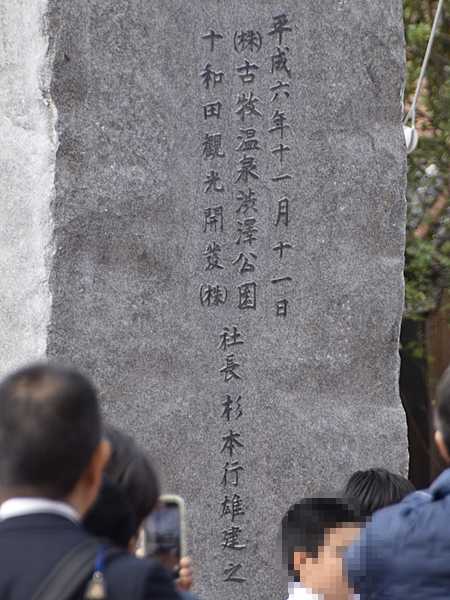 平成六年十一月十一日
㈱古牧温泉渋澤公園
十和田觀光開發㈱
社長 杉本行雄建之